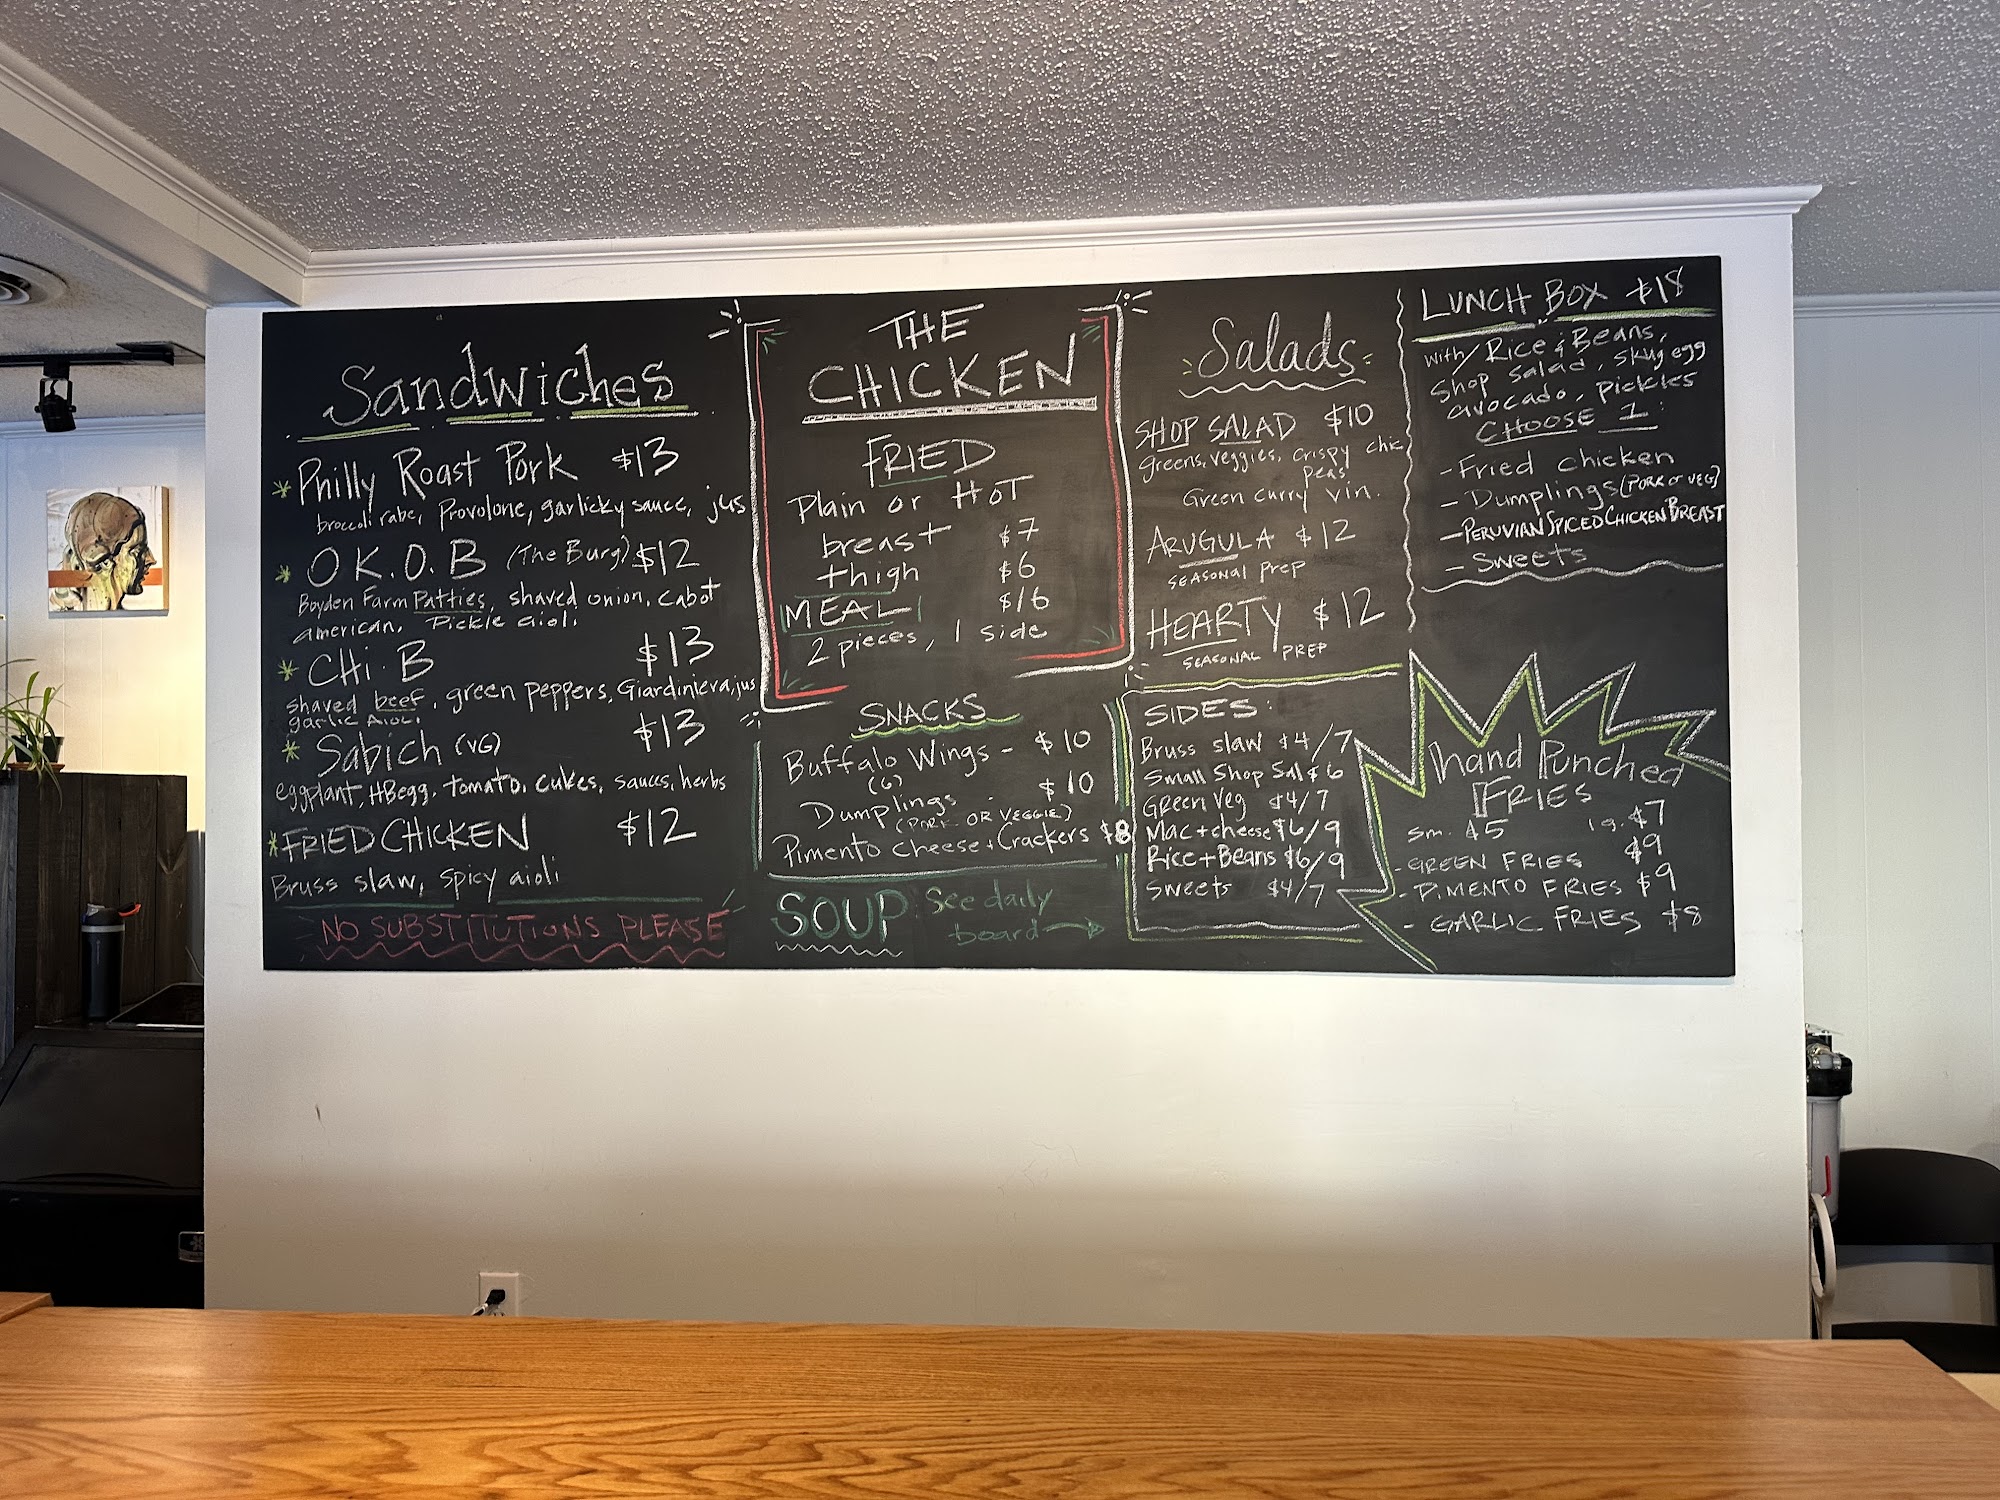 Sandwiches
* Philly Roast Pork $13
broccoli rabe, Provolone, garlicky sauce, jus
* O K.O.B (The Burg) $12
Boyden Farm Patties, shaved onion, cabot
american, Pickle aioli
* CHi.B $13
shaved beef, green peppers, Giardiniera, jus
garlic Aioli
* Sabich (VG) $13
eggplant, HBegg, tomato, cukes, sauces, herbs
* FRIED CHICKEN $12
Bruss slaw, spicy aioli
NO SUBSTITUTIONS PLEASE
THE
CHICKEN
FRIED
Plain or HOT
breast $7
thigh $6
MEAL $16
2 pieces, 1 side
SNACKS
Buffalo Wings - $10
(6)
Dumplings - $10
(PORK OR VEGGIE)
Pimento cheese + Crackers $8
SOUP See daily
board
Salads
SHOP SALAD $10
greens, veggies, crispy chic
peas
Green curry vin.
ARUGULA $12
SEASONAL Prep
HEARTY $12
SEASONAL PREP
SIDES:
Bruss slaw $4/7
Small Shop Sal $6
Green Veg $4/7
Mac + cheese $6/9
Rice + Beans $6/9
Sweets $4/7
LUNCH BOX $18
with/ Rice & Beans,
Shop Salad, Skug egg
avocado, pickles
CHOOSE 1:
- Fried chicken
- Dumplings (PORK or VEG)
- PERUVIAN SPICED CHICKEN BREAST
- Sweets
hand Punched
FRIES
sm. $5 lg. $7
- GREEN FRIES $9
- PIMENTO FRIES $9
- GARLIC FRIES $8